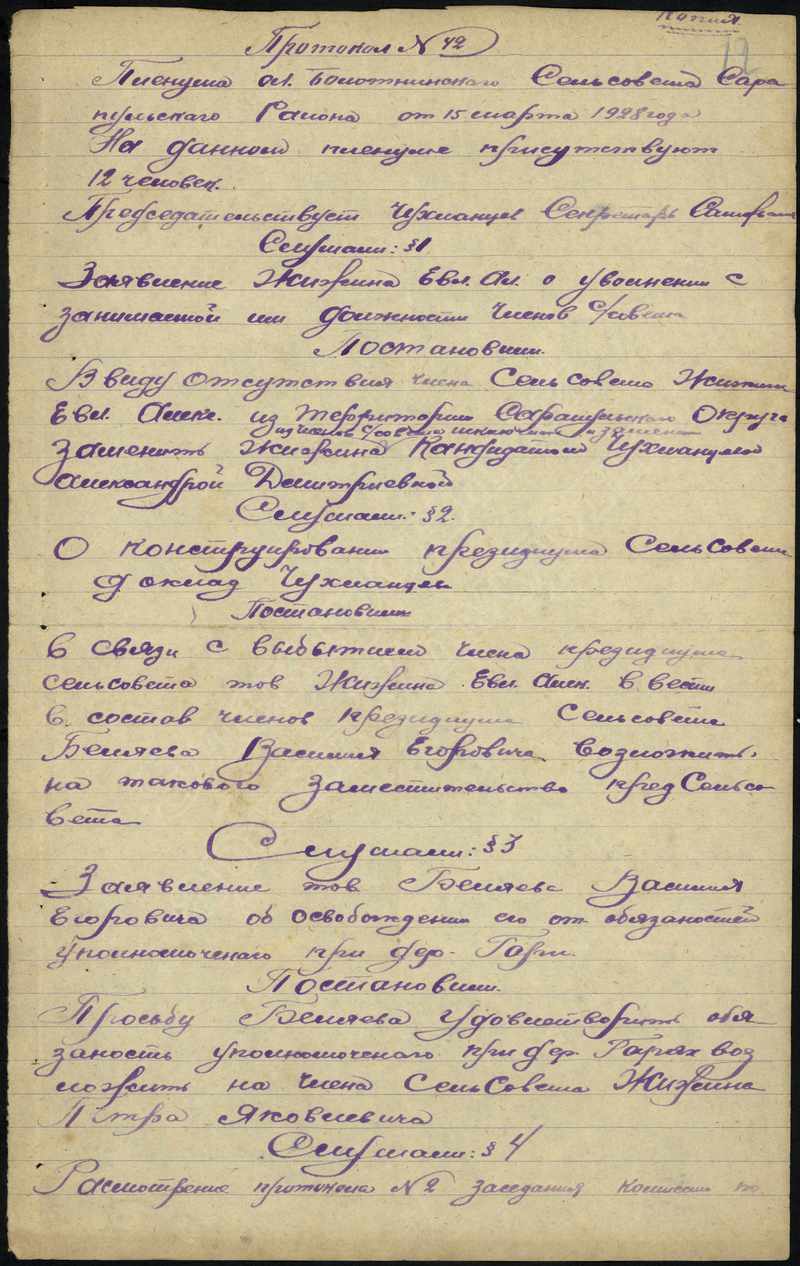 Копия
12
Протокол № 42
Пленума ал. Болотнинскаго Сельсовета Сара
пульскаго Района от 15 марта 1928 года
На данном пленуме присутствуют
12 человек.
Председательствует Чухланцев Секретарь
Слушали: §1
Заявление Жижина Евл. Ал. о уволнении с
занимаемой им должности Членов с/совета
Постановили.
В виду отсутствия члена Сельсовета Жижина
Евл. Алек. из территории Сарапульскаго Округа
из членов с/совета исключить и заменит
Заменить Жижина Кандидатом Чухланцевой
Александрой Дмитриевной
Слушали: §2.
О конструировании президиума Сельсовета
доклад Чухланцева
Постановили
В связи с выбытием члена президиума
сельсовета тов Жижина Евл. Алек. в вести
в состав членов президиума Сельсовета
Беляева Василия Егоровича возложить
на такового заместительство пред Сельсо
вета
Слушали: §3
Заявление тов Беляева Василия
Егоровича об освобождении его от обязаностей
уполномоченаго при дер. Гари.
Постановили.
Просьбу Беляева удовлетворить обя
заность уполномоченаго при дер Гарях воз
ложить на члена СельСовета Жижина
Петра Яковлевича
Слушали: § 4
Расмотрение протокола № 2 заседания комиссии по